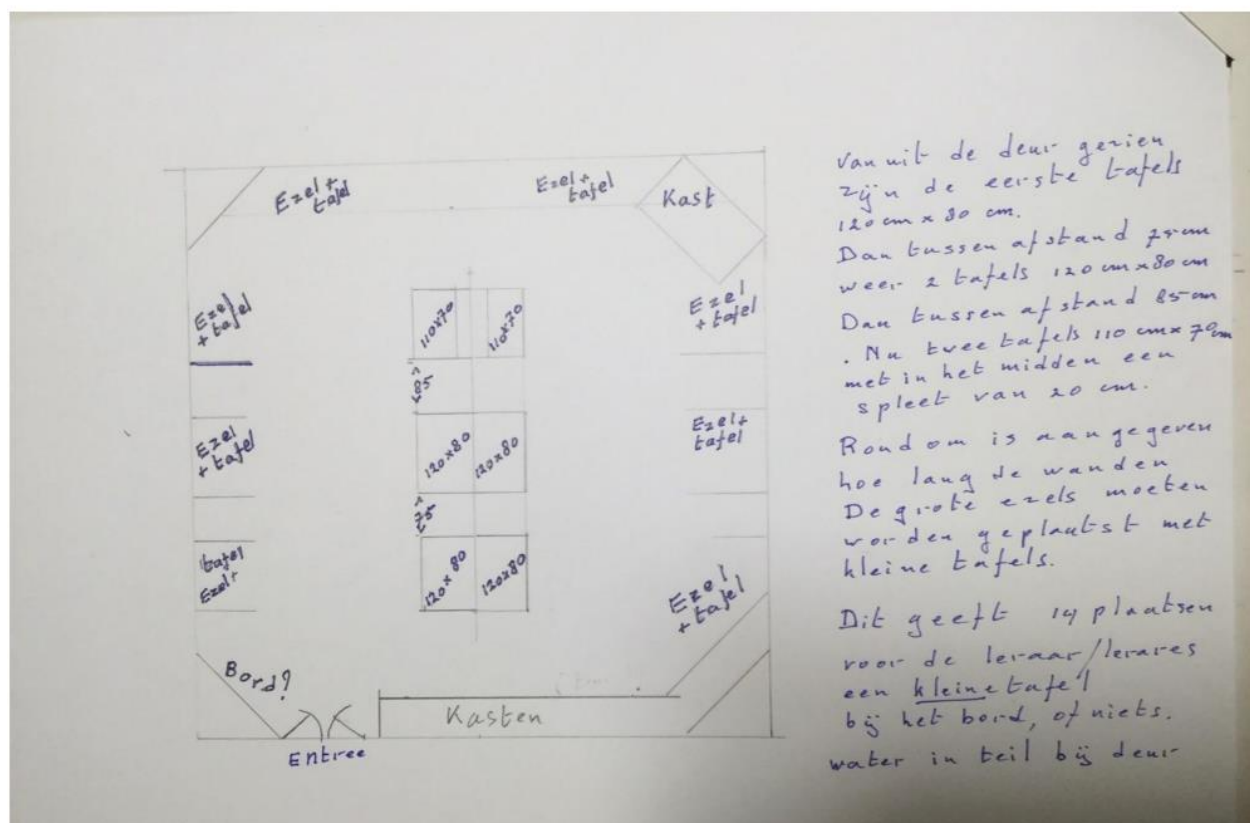 Ezel +
tafel
Ezel +
tafel
Kast
Ezel
+ tafel
110x70
110x70
Ezel
+ tafel
85
Ezel
+ tafel
120x80
120x80
Ezel +
tafel
75
tafel
Ezel +
120x80
120x80
Ezel
+ tafel
Bord?
Kasten
Entree
Vanuit de deur gezien
zijn de eerste tafels
120 cm x 80 cm.
Dan tussen afstand 75 cm
weer 2 tafels 120 cm x 80 cm
Dan tussen afstand 85 cm
. Nu twee tafels 110 cm x 70 cm
met in het midden een
spleet van 20 cm.
Rondom is aangegeven
hoe lang de wanden
De grote ezels moeten
worden geplaatst met
kleine tafels.
Dit geeft 14 plaatsen
voor de leraar/lerares
een kleine tafel
bij het bord, of niets.
water in teil bij deur